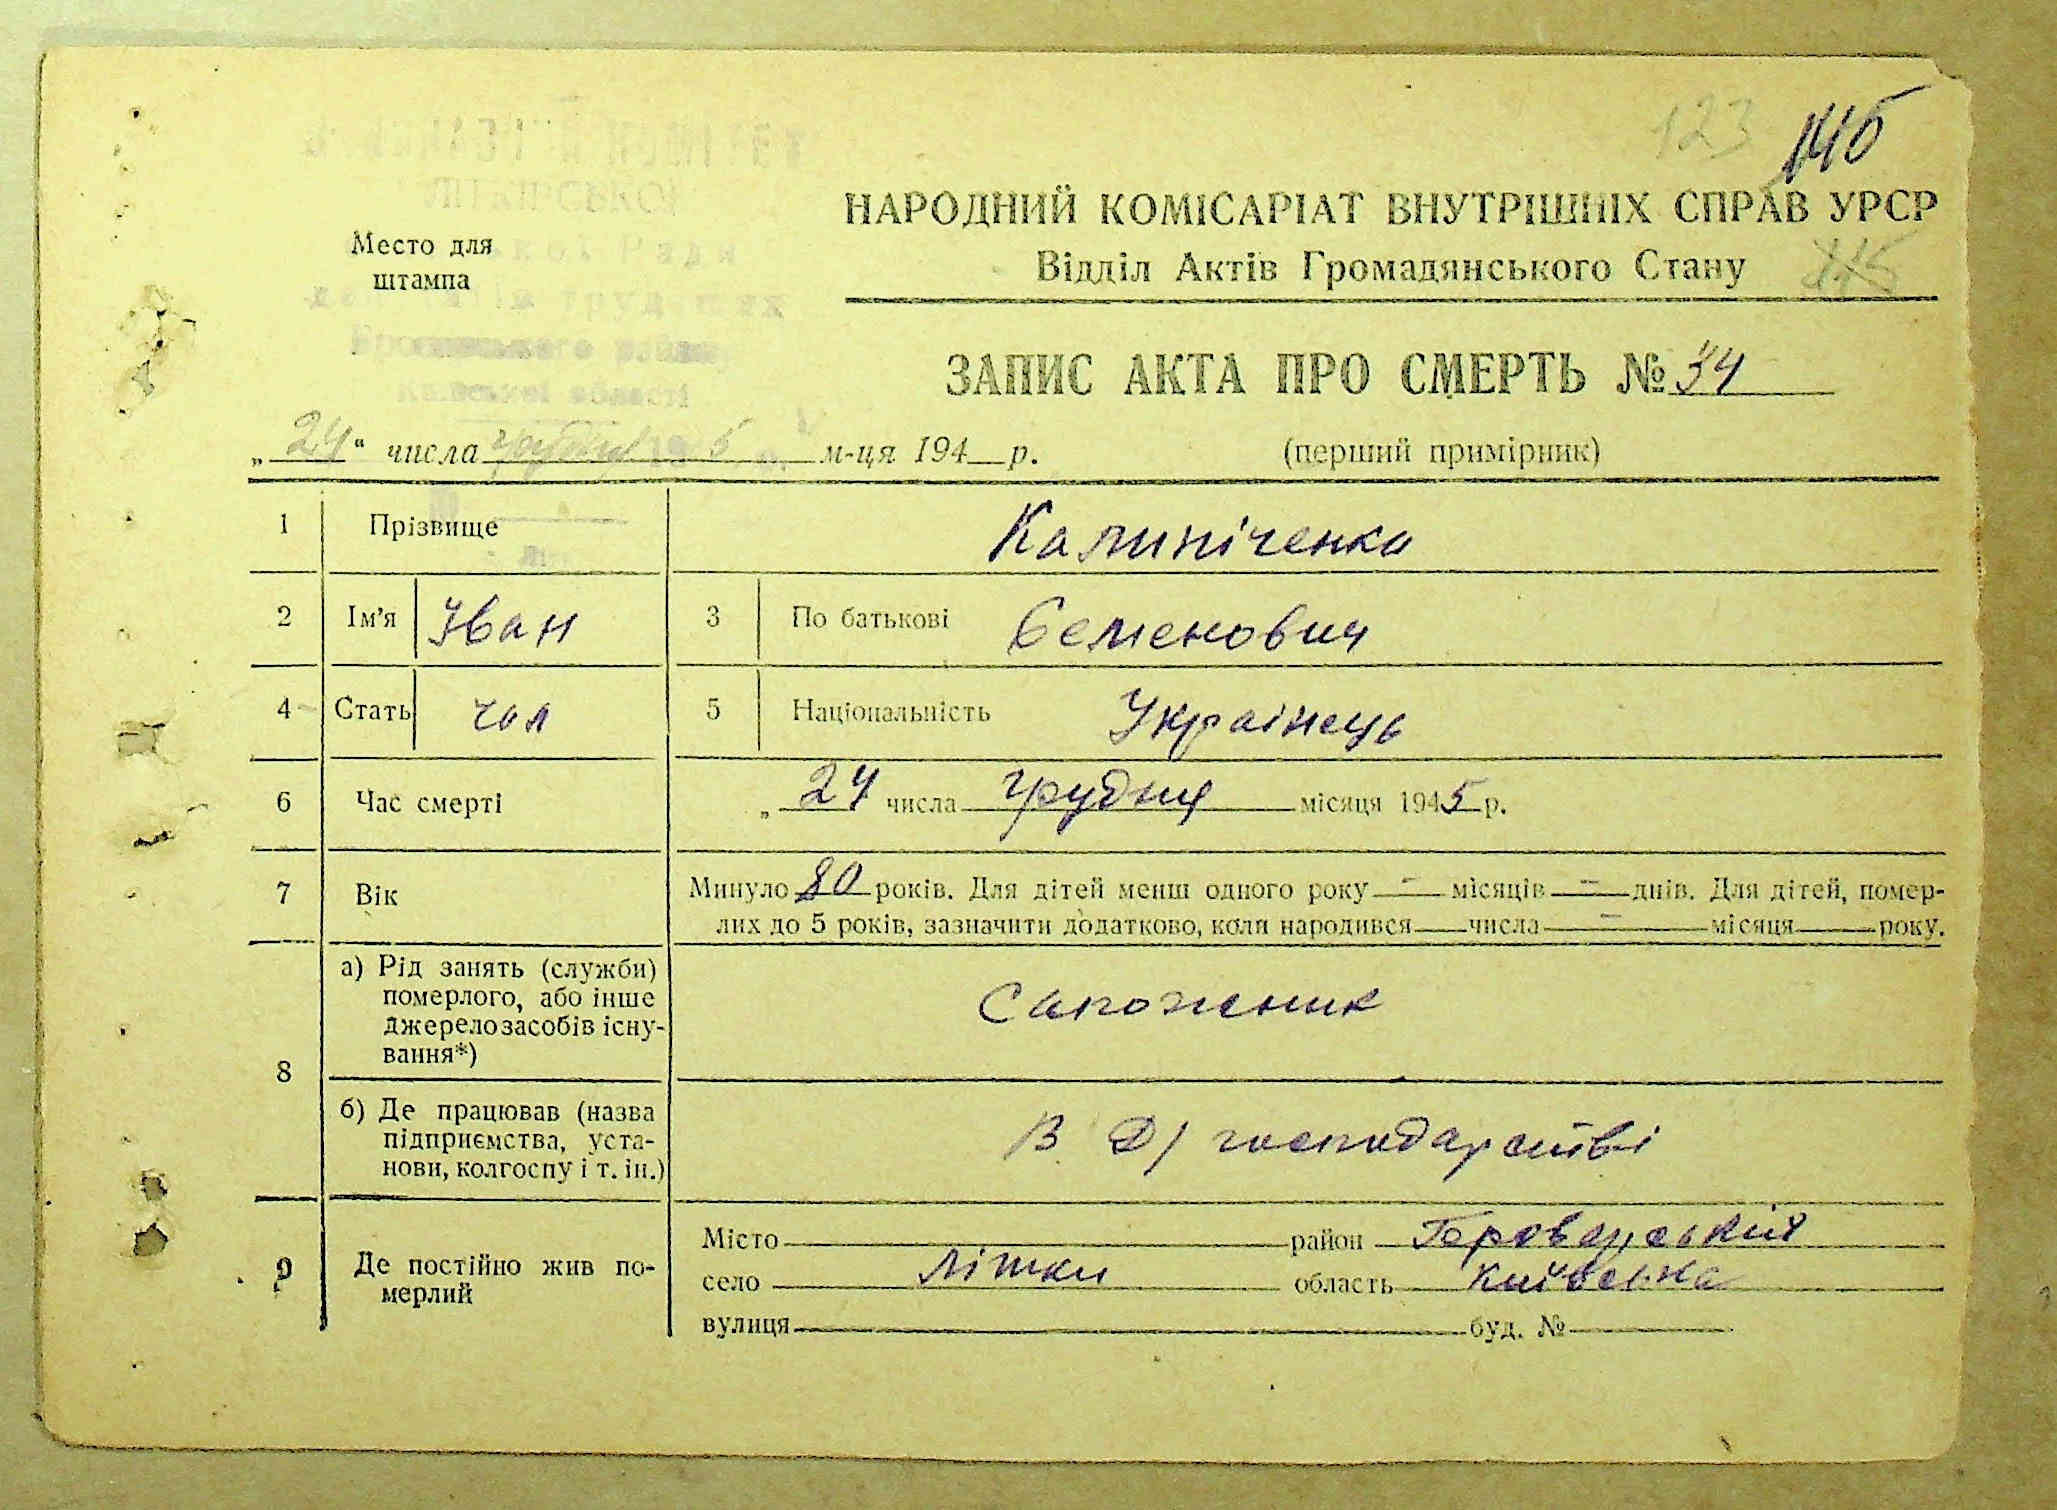 123 146
НАРОДНИЙ КОМІСАРІАТ ВНУТРІШНІХ СПРАВ УРСР
Відділ Актів Громадянського Стану
Место для
штампа
ЛІТКІВСЬКОЇ
Ради
трудящих
району
Київської області
ЗАПИС АКТА ПРО СМЕРТЬ № 34
„24“ числа грудня м-ця 194 р. (перший примірник)
1 Прізвище Калиніченко
2 Ім'я Іван 3 По батькові Семенович
4 Стать чол 5 Національність Українець
6 Час смерті „ 24 числа грудня місяця 1945 р.
7 Вік Минуло 80 років. Для дітей менш одного року – місяців – днів. Для дітей, помер-
лих до 5 років, зазначити додатково, коли народився числа – місяця року.
8 а) Рід занять (служби)
померлого, або інше
джерело засобів існу-
вання*)
Сапожник
б) Де працював (назва
підприємства, уста-
нови, колгоспу і т. ін.)
В Д/ господарстві
9 Де постійно жив по-
мерлий
Місто район Броварський
село Літки область Київська
вулиця буд. №